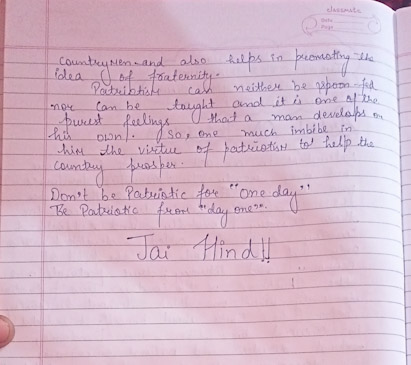 classmate
Date
Page
countrymen and also helps in promoting the
idea of fraternity.
Patriotism can neither be spoon-fed
nor can be taught and it is one of the
purest feelings that a man develops on
his own. So, one much imbibe in
him the virtue of patriotism to help the
country prosper.
Don't be Patriotic for "one day"
Be Patriotic from "day one".
Jai Hind!!